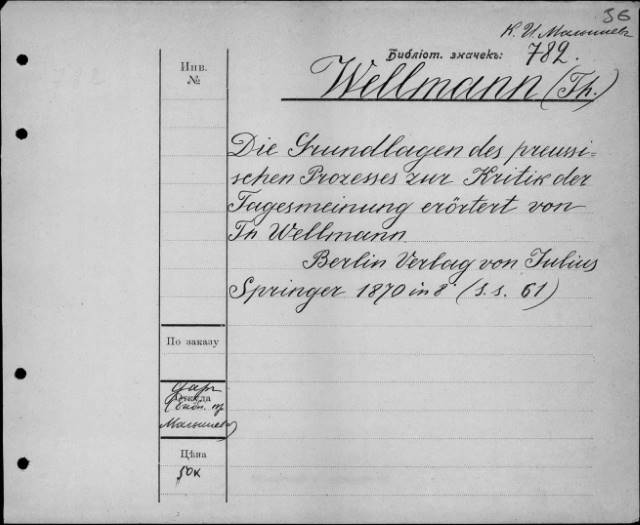 36
К. И. Малышев
Библіот. значекъ: 782.
Инв.
№
Wellmann (Th.)
Die Grundlagen des preussi-
schen Prozesses zur Kritik der
Tagesmeinung erörtert von
Th Wellmann
Berlin Verlag von Julius
Springer 1870 in 8° (S. s. 61)
По заказу
Даръ
Откуда
(библ. пр.
Малышев)
Цѣна
50к